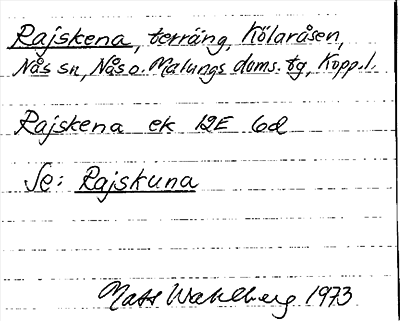 Rajskena, terräng, Kölaråsen,
Nås sn, Nås o. Malungs doms. tg, Kopp. l.
Rajskena ek 12E 6d
Se: Rajskuna
Mats Wahlberg 1973